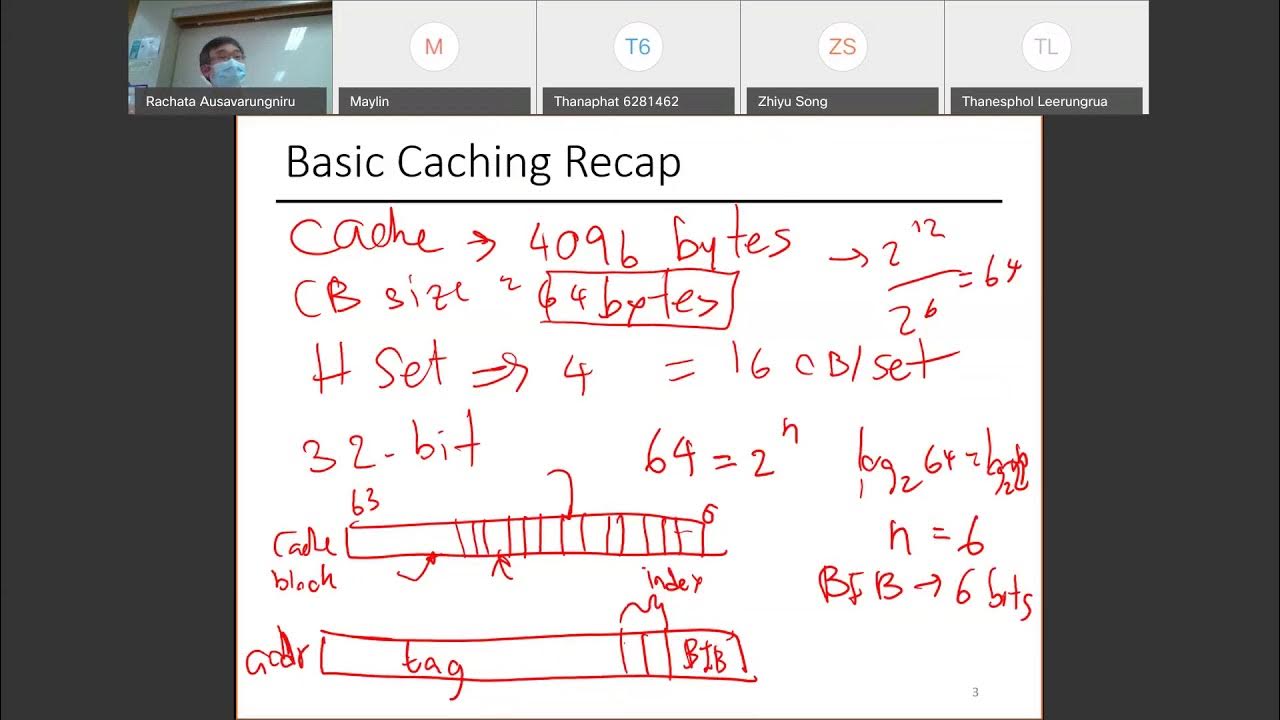 M
T6
ZS
TL
Rachata Ausavarungniru
Maylin
Thanaphat 6281462
Zhiyu Song
Thanesphol Leerungrua
Basic Caching Recap
Cache → 4096 bytes → 2^12 / 2^6 = 64
CB size = 64 bytes
# Set ⇒ 4 = 16 CB/set
32-bit 64 = 2^n log₂ 64 =
63 0
Cache block
n = 6
BIB → 6 bits
index
addr tag BIB
3